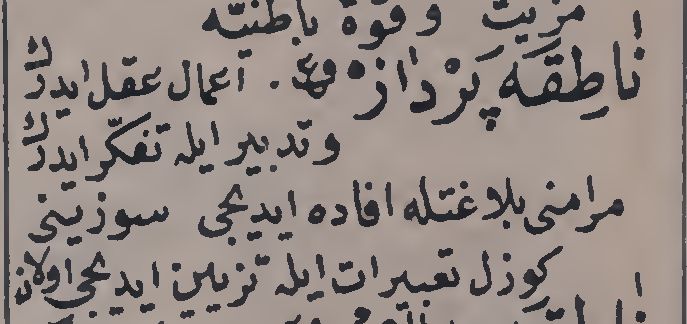 مزيت وقوهٔ باطنيه
ناطِقَه پَرْدازْ ص . اعمال عقل ايدرك
وتدبير ايله تفكر ايدرك
مرامنى بلاغتله افاده ايديجى سوزينى
كوزل تعبيرات ايله تزيين ايديجى اولان